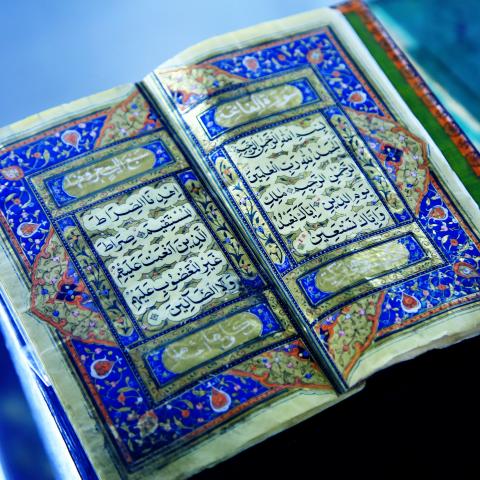 سورة الفاتحة
بسم الله الرحمن الرحيم
الحمد لله رب العالمين
الرحمن الرحيم ملك
يوم الدين اياك نعبد
واياك نستعين
اهدنا الصراط
المستقيم صراط
الذين انعمت عليهم
غير المغضوب عليهم
ولا الضالين